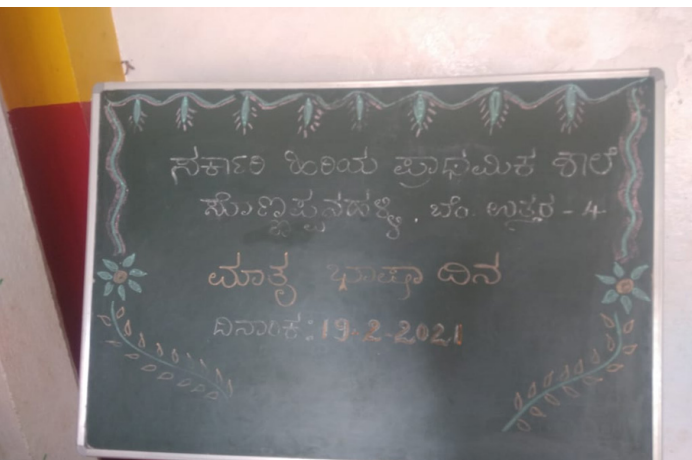 ಸರ್ಕಾರಿ ಹಿರಿಯ ಪ್ರಾಥಮಿಕ ಶಾಲೆ
ಸೊಣ್ಣಪ್ಪನಹಳ್ಳಿ, ಬೆಂ. ಉತ್ತರ - 4
ಮಾತೃ ಭಾಷಾ ದಿನ
ದಿನಾಂಕ : 19-2-2021